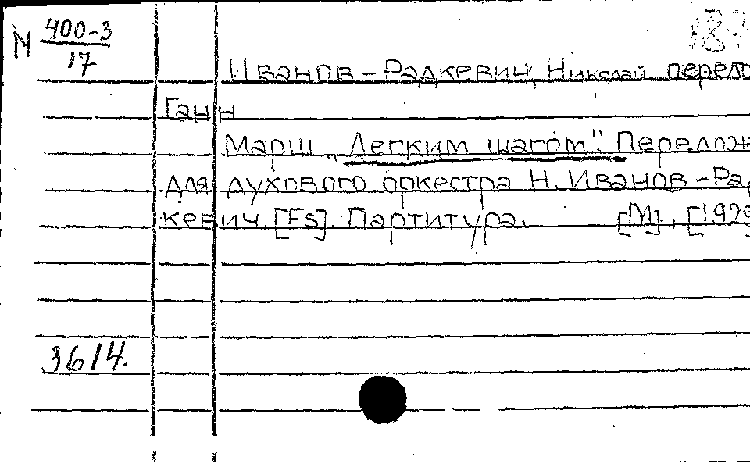 N 400-3
17
Иванов-Радкевич, Николай перело
Ганн
Марш „Легким шагом". Перелож
для духового оркестра Н. Иванов-Рад
кевич. [Es]. Партитура. [М], [1929
3614.